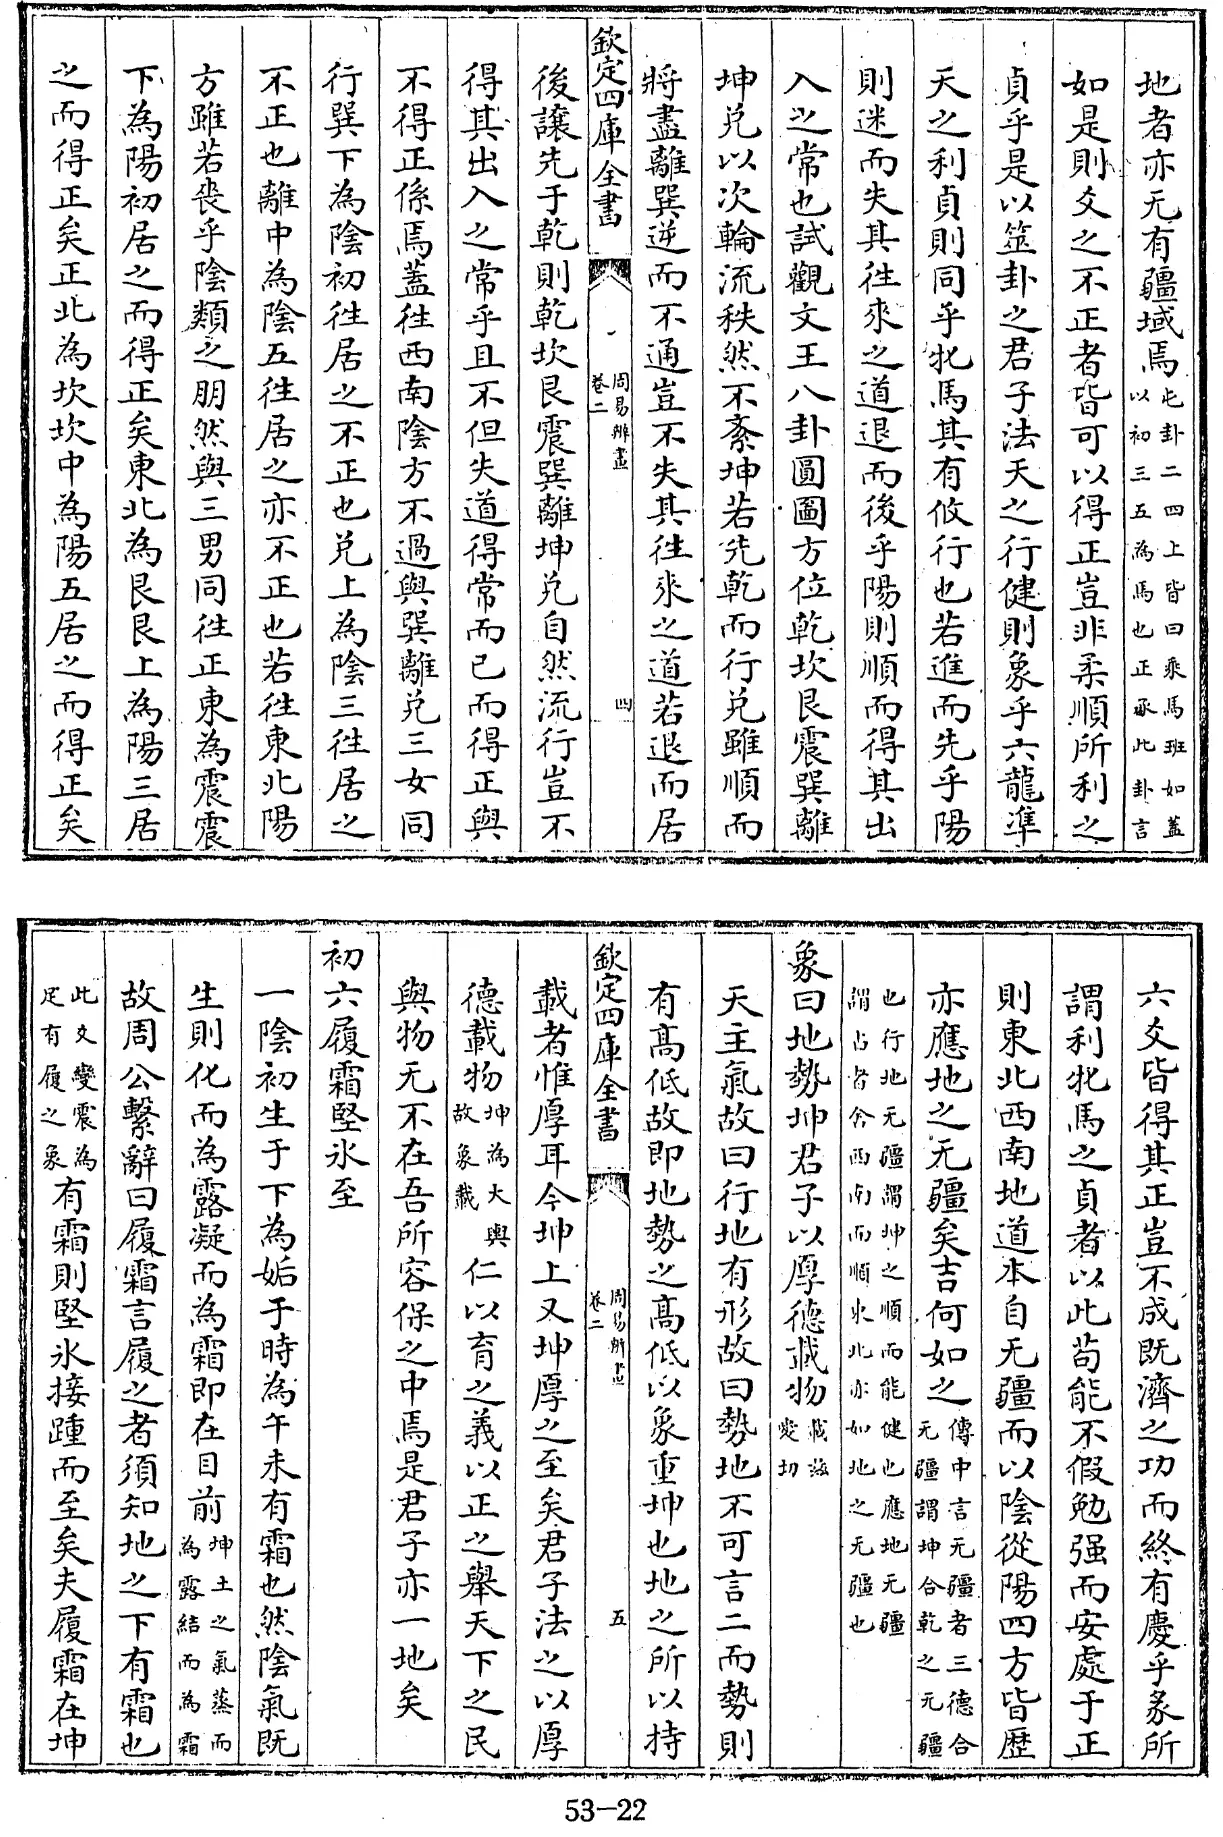 地者亦无有疆域焉屯卦二四上皆曰乘馬班如蓋以初三五為馬也正承此卦言
如是則爻之不正者皆可以得正豈非柔順所利之
貞乎是以筮卦之君子法天之行健則象乎六龍準
天之利貞則同乎牝馬其有攸行也若進而先乎陽
則迷而失其往來之道退而後乎陽則順而得其出
入之常也試觀文王八卦圓圖方位乾坎艮震巽離
坤兑以次輪流秩然不紊坤若先乾而行兑雖順而
將盡離巽逆而不通豈不失其往來之道若退而居
欽定四庫全書
周易辨畫
卷二
四
後讓先于乾則乾坎艮震巽離坤兑自然流行豈不
得其出入之常乎且不但失道得常而已而得正與
不得正係焉蓋往西南陰方不過與巽離兑三女同
行巽下為陰初往居之不正也兑上為陰三往居之
不正也離中為陰五往居之亦不正也若往東北陽
方雖若喪乎陰類之朋然與三男同往正東為震震
下為陽初居之而得正矣東北為艮艮上為陽三居
之而得正矣正北為坎坎中為陽五居之而得正矣
六爻皆得其正豈不成既濟之功而終有慶乎彖所
謂利牝馬之貞者以此苟能不假勉强而安處于正
則東北西南地道本自无疆而以陰從陽四方皆歷
亦應地之无疆矣吉何如之傳中言无疆者三德合无疆謂坤合乾之无疆
也行地无疆謂坤之順而能健也應地无疆謂占者令西南而順東北亦如地之无疆也
象曰地勢坤君子以厚德載物載茲變切
天主氣故曰行地有形故曰勢地不可言二而勢則
有高低故即地勢之高低以象重坤也地之所以持
欽定四庫全書
周易辨畫
卷二
五
載者惟厚耳今坤上又坤厚之至矣君子法之以厚
德載物坤為大輿故象載仁以育之義以正之舉天下之民
與物无不在吾所容保之中焉是君子亦一地矣
初六履霜堅氷至
一陰初生于下為姤于時為午未有霜也然陰氣既
生則化而為露凝而為霜即在目前坤土之氣蒸而為露結而為霜
故周公繫辭曰履霜言履之者須知地之下有霜也
此爻變震為足有履之象有霜則堅氷接踵而至矣夫履霜在坤
53-22